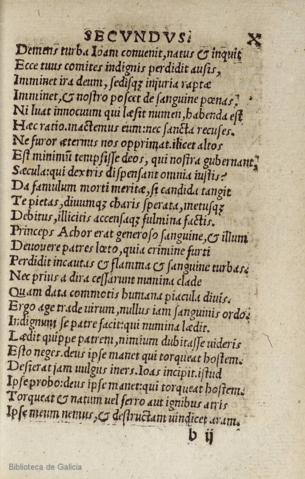 SECVNDVS.
Demens turba Ioam conuenit, natus & inquit
Ecce tuus comites indignis perdidit ausis,
Imminet ira deum, sedisq; iniuria raptæ
Imminet, & nostro poscet de sanguine pœnas,
Ni luat innocuum qui læsit numen, habenda est
Hæc ratio. mactemus eum: nec sancta recuses.
Ne furor æternus nos opprimat. ilicet altos
Est minimũ tempsisse deos, qui nostra gubernant,
Sæcula: qui dextris dispensant omnia iustis?
Da famulum morti meritæ, si candida tangit
Te pietas, diuumq; charis sperata, metusq;
Debitus, illicitis accensaq; fulmina factis.
Princeps Achor erat generoso sanguine, & illum
Deuouere patres læto, quia crimine furti
Perdidit incautas & flamma & sanguine turbas.
Nec prius a dira cessarunt numina clade
Quam data commotis humana piacula diuis.
Ergo age trade uirum, nullus iam sanguinis ordo:
Indignum se patre facit: qui numina lædit.
Lædit quippe patrem, nimium dubitasse uideris
Esto neges. deus ipse manet qui torqueat hostem.
Desierat iam uulgus iners. Ioas incipit. istud
Ipse probo: deus ipse manet: qui torqueat hostem.
Torqueat & natum uel ferro aut ignibus atris
Ipse meum nemus, & destructam uindicet aram.
b ij
Biblioteca de Galicia